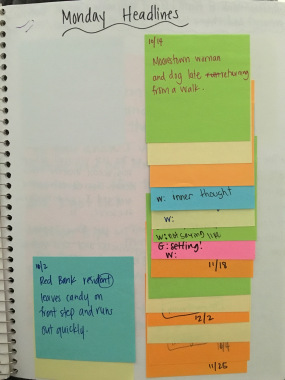 Monday Headlines
10/19
Moorestown woman
and dog late returning
from a walk.
W: inner thought
W:
G: setting!
W:
11/18
12/2
11/25
10/2
Red Bank resident
leaves candy on
front step and runs
out quickly.